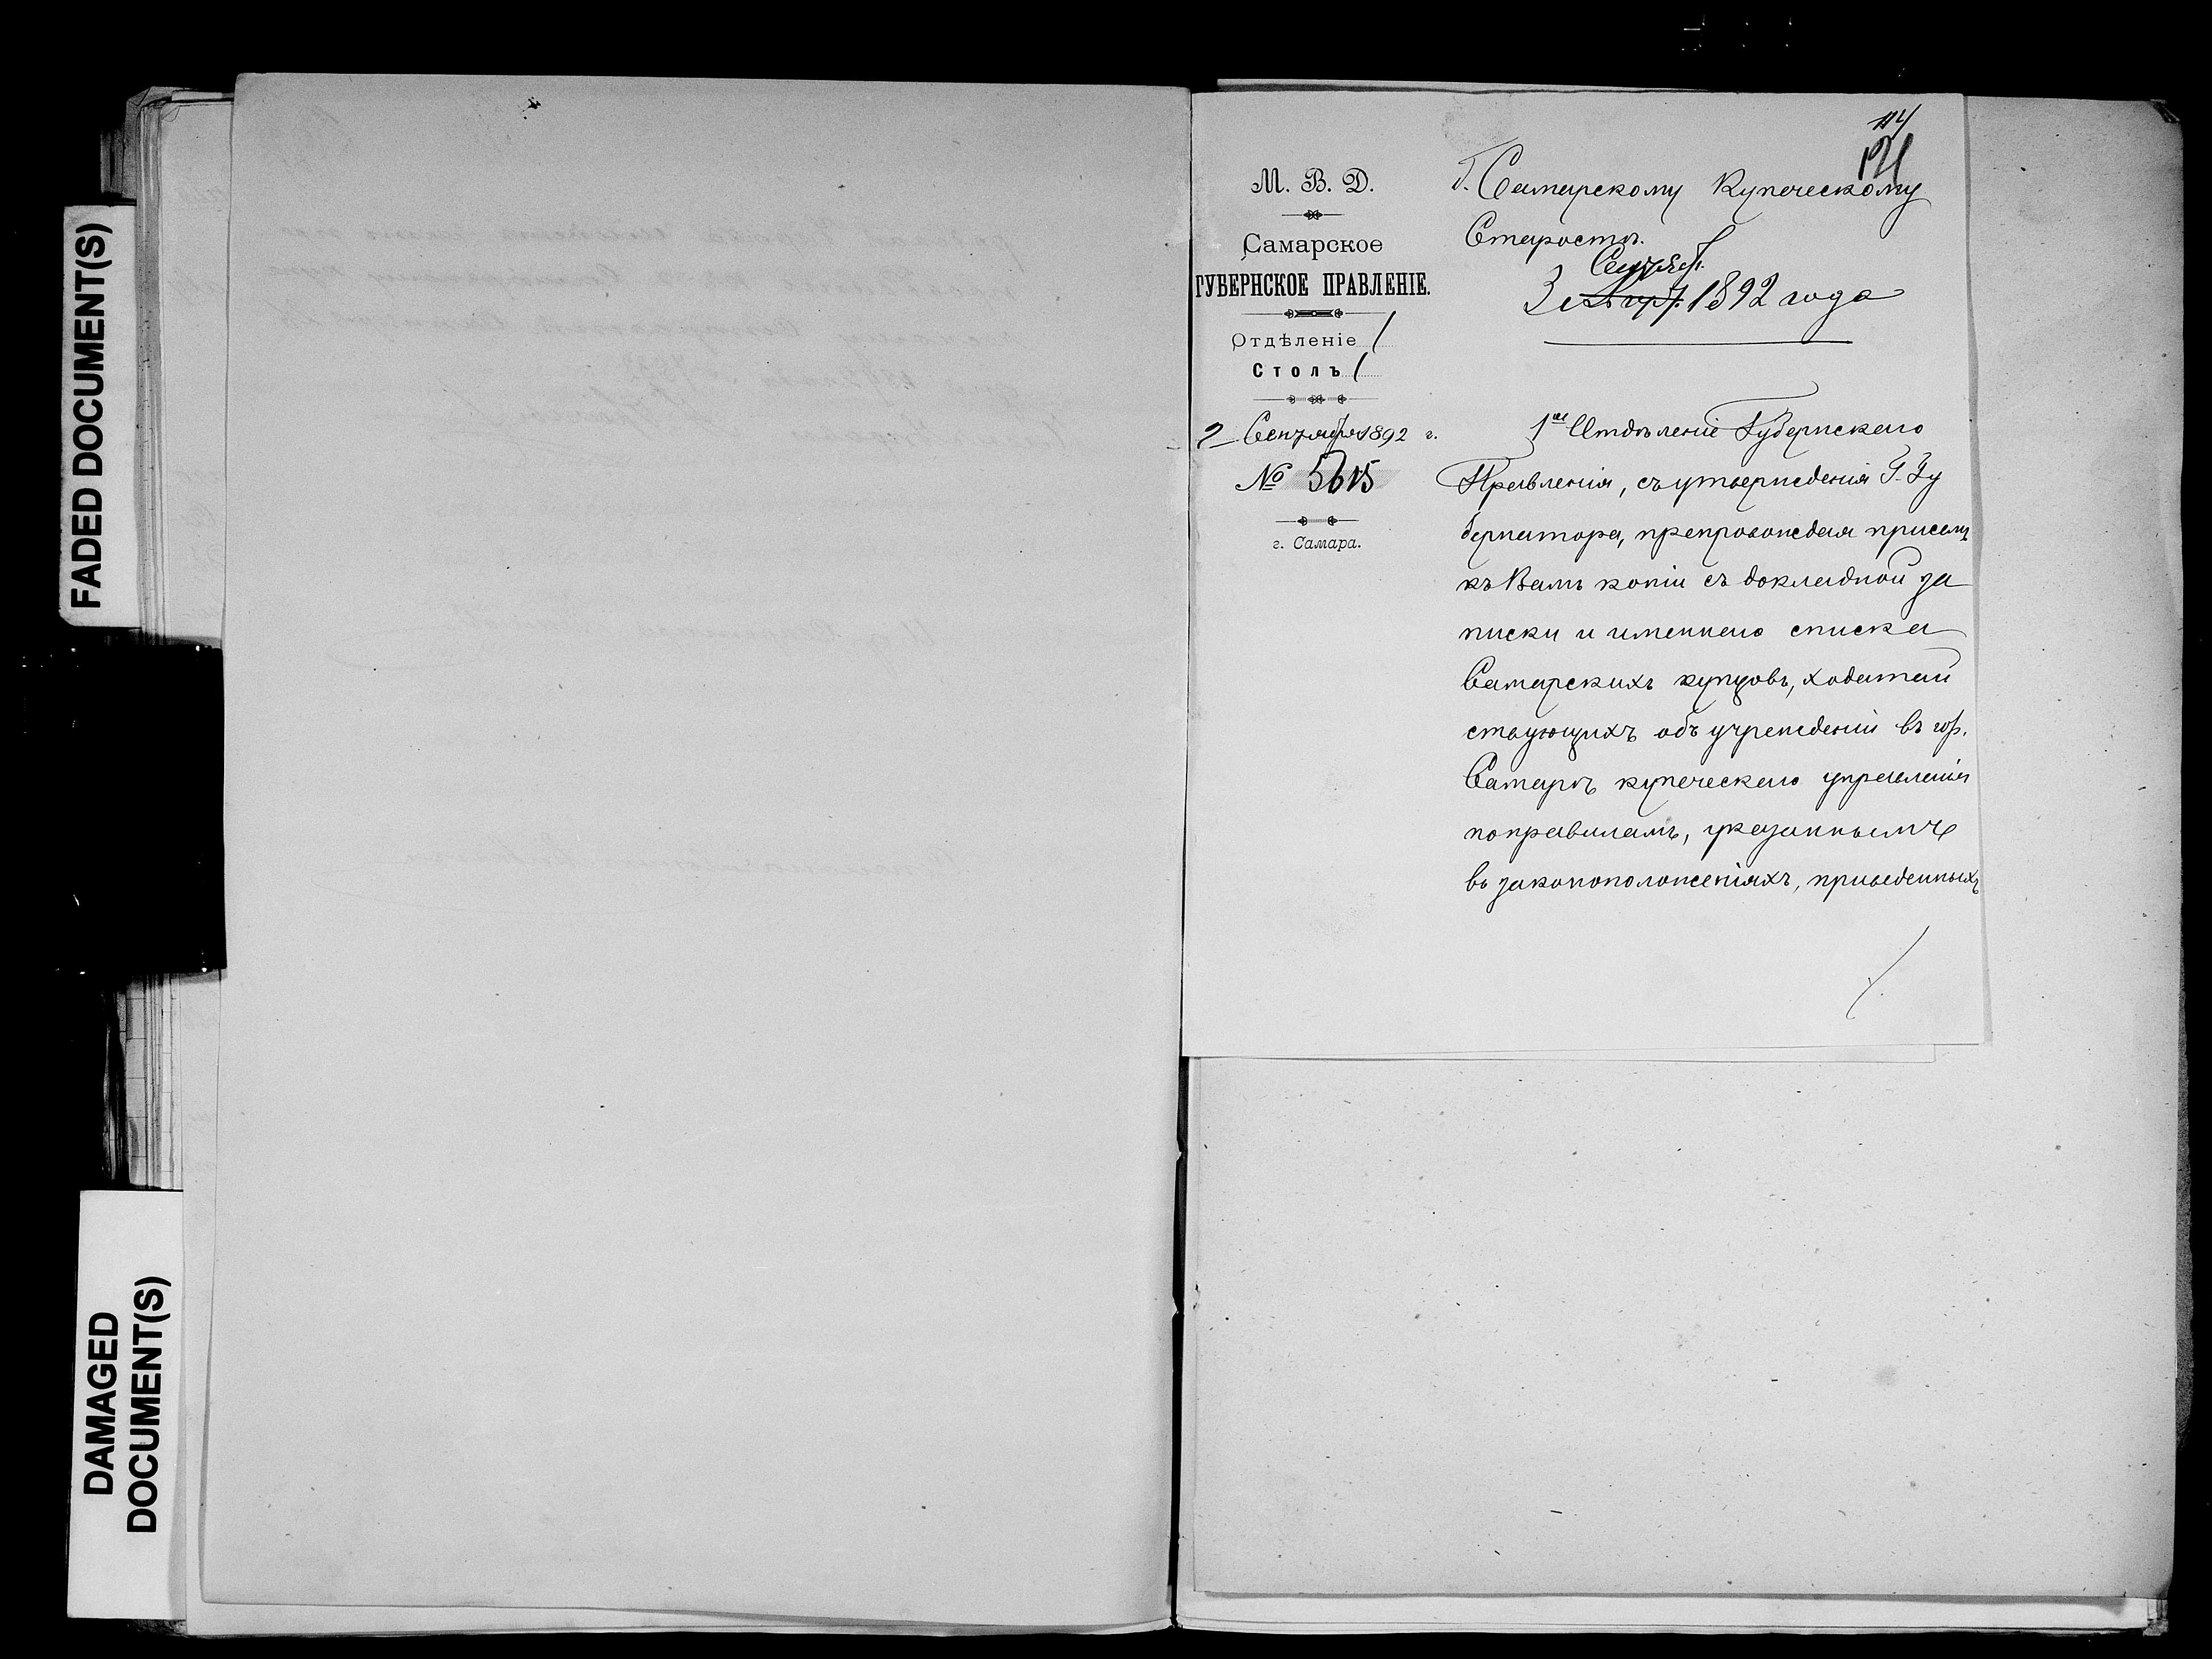 FADED DOCUMENT(S)
DAMAGED
DOCUMENT(S)
114
121
М. В. Д.
Самарское
ГУБЕРНСКОЕ ПРАВЛЕНІЕ.
Отдѣленіе 1
Столъ 1
2 Сентября 1892 г.
№ 5615
г. Самара.
Г. Самарскому Купеческому
Старостѣ.
Сентяб.
3 1892 года
1ое Отдѣленіе Губернскаго
Правленія, съ утвержденія Г. Гу
бернатора, препровождая при семъ
къ Вамъ копіи съ докладной за
писки и именнаго списка
Самарскихъ купцовъ, ходатай
ствующихъ объ учрежденіи въ гор.
Самарѣ купеческаго управленія
по правиламъ, указаннымъ
въ законоположеніяхъ, приведенныхъ